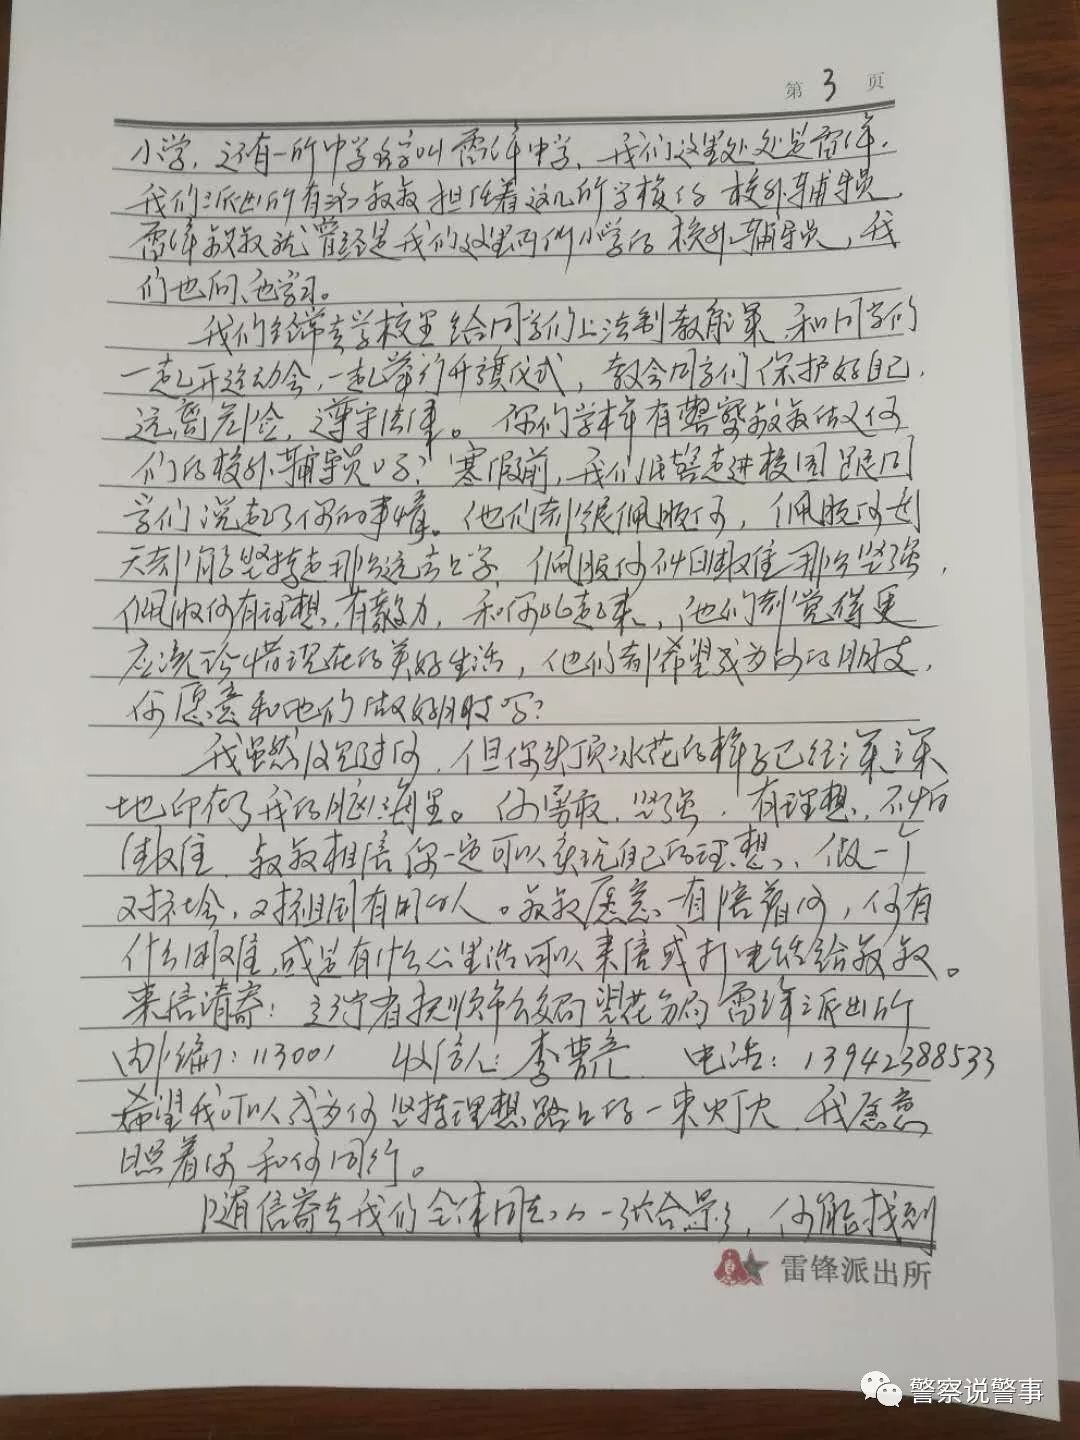 第 3 页
小学，还有一所中学名字叫雷锋中学，我们这里处处是雷锋，
我们派出所有的叔叔担任着这几所学校的校外辅导员，
雷锋叔叔就曾经是我们这里两所小学的校外辅导员，我
们也向他学习。
我们经常去学校里给同学们上法制教育课，和同学们
一起开运动会，一起举行升旗仪式，教会同学们保护好自己，
远离危险，遵守法律。你们学校有警察叔叔做你
们的校外辅导员吗？寒假前，我们民警走进校园跟同
学们说起了你的事情。他们都很佩服你，佩服你每
天都能坚持走那么远去上学，佩服你不怕困难那么坚强，
佩服你有理想，有毅力，和你比起来，他们都觉得更
应该珍惜现在的美好生活，他们都希望成为你的朋友，
你愿意和他们做好朋友吗？
我虽然没见过你，但你头顶冰花的样子已经深深
地印在了我的脑海里。你勇敢，坚强，有理想，不怕
困难，叔叔相信你一定可以实现自己的理想，做一个
对社会，对祖国有用的人。叔叔愿意一直陪着你，你有
什么困难，或是有什么心里话可以来信或打电话给叔叔。
来信请寄：辽宁省抚顺市公安局望花分局雷锋派出所
邮编：113001 收信人：李曹亮 电话：13942388533
希望我可以成为你坚持理想路上的一束灯火，我愿意
照着你和你同行。
随信寄去我们全体同志的一张合影，你能找到
雷锋派出所
警察说警事